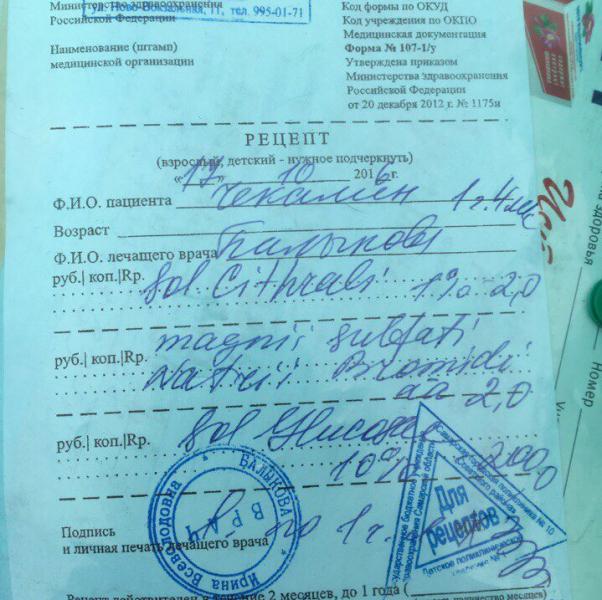 Министерство здравоохранения
Российской Федерации
ул. Ново-Вокзальная, 11, тел. 995-01-71
Наименование (штамп)
медицинской организации
Код формы по ОКУД
Код учреждения по ОКПО
Медицинская документация
Форма № 107-1/у
Утверждена приказом
Министерства здравоохранения
Российской Федерации
от 20 декабря 2012 г. № 1175н
РЕЦЕПТ
(взрослый, детский - нужное подчеркнуть)
«17» 10 2016 г.
Ф.И.О. пациента 1 г. 4 мес
Возраст
Ф.И.О. лечащего врача
руб.| коп.|Rp. Sol Citrali 1% 2,0
руб.| коп.|Rp. magnii sulfati
Natrii Bromidi
aa 2,0
руб.| коп.|Rp. Sol Glucosae
10% 200,0
по 1
Подпись
и личная печать лечащего врача
БАЛЫКОВА
Ирина Всеволодовна
ВРАЧ
Для
рецептов
Рецепт действителен в течение 2 месяцев, до 1 года (
количество месяцев)
здоровья
Номер